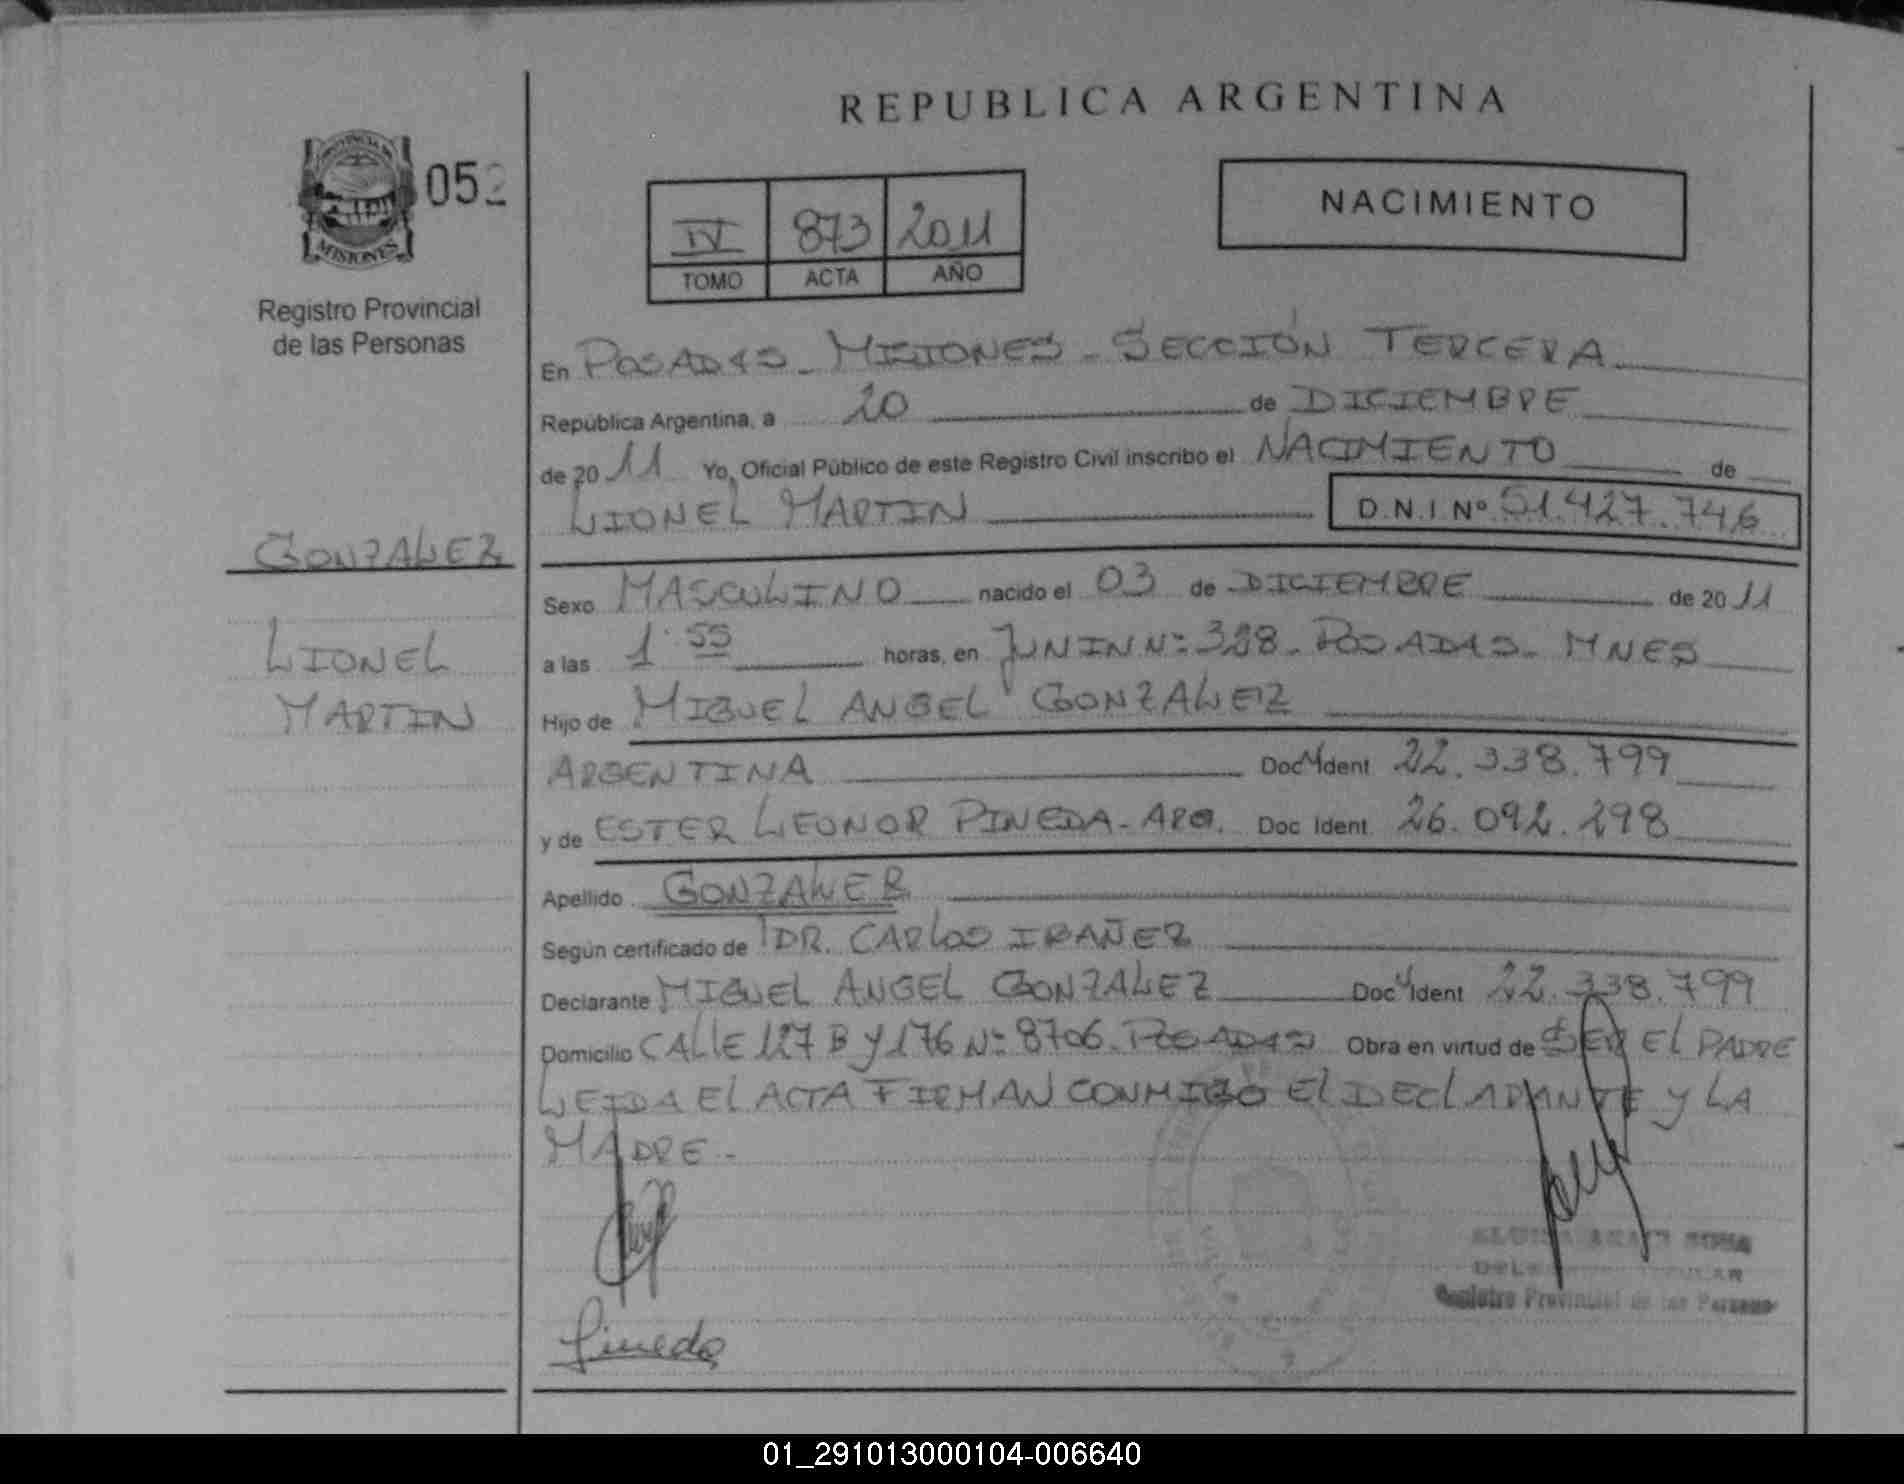 REPUBLICA ARGENTINA
PROVINCIA DE
MISIONES
052
NACIMIENTO
IV 873 2011
TOMO ACTA AÑO
Registro Provincial
de las Personas
En POSADAS - MISIONES - SECCIÓN TERCERA
República Argentina, a 20 de DICIEMBRE
de 20 11 Yo, Oficial Público de este Registro Civil inscribo el NACIMIENTO de
LIONEL MARTIN D.N.I Nº 51.427.746
GONZALEZ
LIONEL
MARTIN
Sexo MASCULINO nacido el 03 de DICIEMBRE de 20 11
a las 1:55 horas, en JUNIN Nº 328 - POSADAS - MNES
Hijo de MIGUEL ANGEL GONZALEZ
ARGENTINA Doc Ident 22.338.799
y de ESTER LEONOR PINEDA - ARG. Doc Ident 26.092.298
Apellido GONZALEZ
Según certificado de DR. CARLOS IBAÑEZ
Declarante MIGUEL ANGEL GONZALEZ Doc Ident 22.338.799
Domicilio CALLE 127 B y 176 Nº 8706 - POSADAS Obra en virtud de SER EL PADRE
LEIDA El ACTA FIRMAN CONMIGO El DEClARANTE y LA
MADRE -
Registro Provincial de las Personas
Pineda
01_291013000104-006640